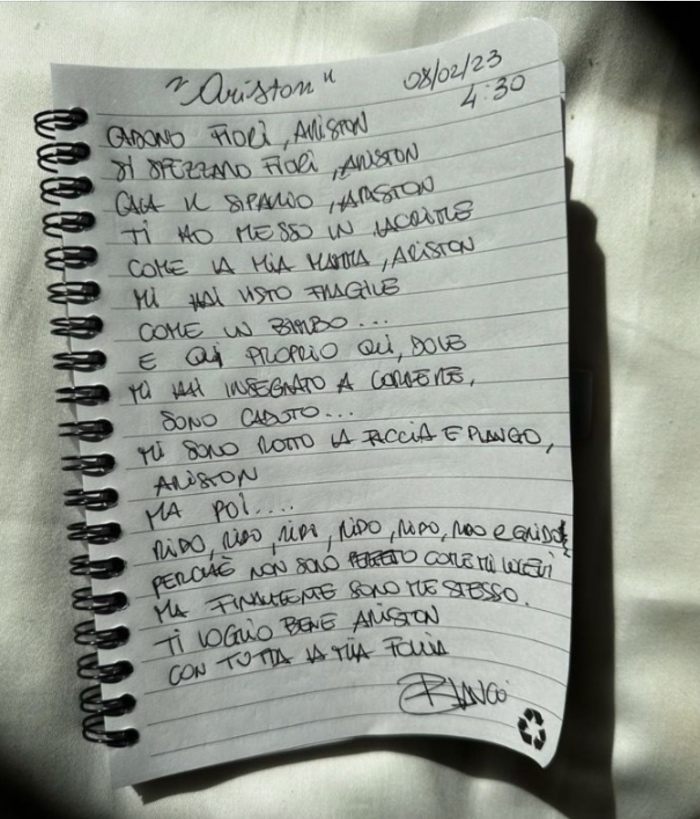 "Ariston" 08/02/23
4:30
CADONO FIORI, ARISTON
SI SPEZZANO FIORI, ARISTON
CALA IL SIPARIO, ARISTON
TI HO MESSO IN LACRIME
COME LA MIA MAMMA, ARISTON
MI HAI VISTO FRAGILE
COME UN BIMBO...
E QUI PROPRIO QUI, DOVE
MI HAI INSEGNATO A CORRERE,
SONO CADUTO...
MI SONO ROTTO LA FACCIA E PIANGO,
ARISTON
MA POI....
RIDO, RIDO, RIDO, RIDO, RIDO, RIDO E GRIDO
PERCHÈ NON SONO PERFETTO COME MI VOLEVI
MA FINALMENTE SONO ME STESSO.
TI VOGLIO BENE ARISTON
CON TUTTA LA MIA FOLLIA
BLANCO